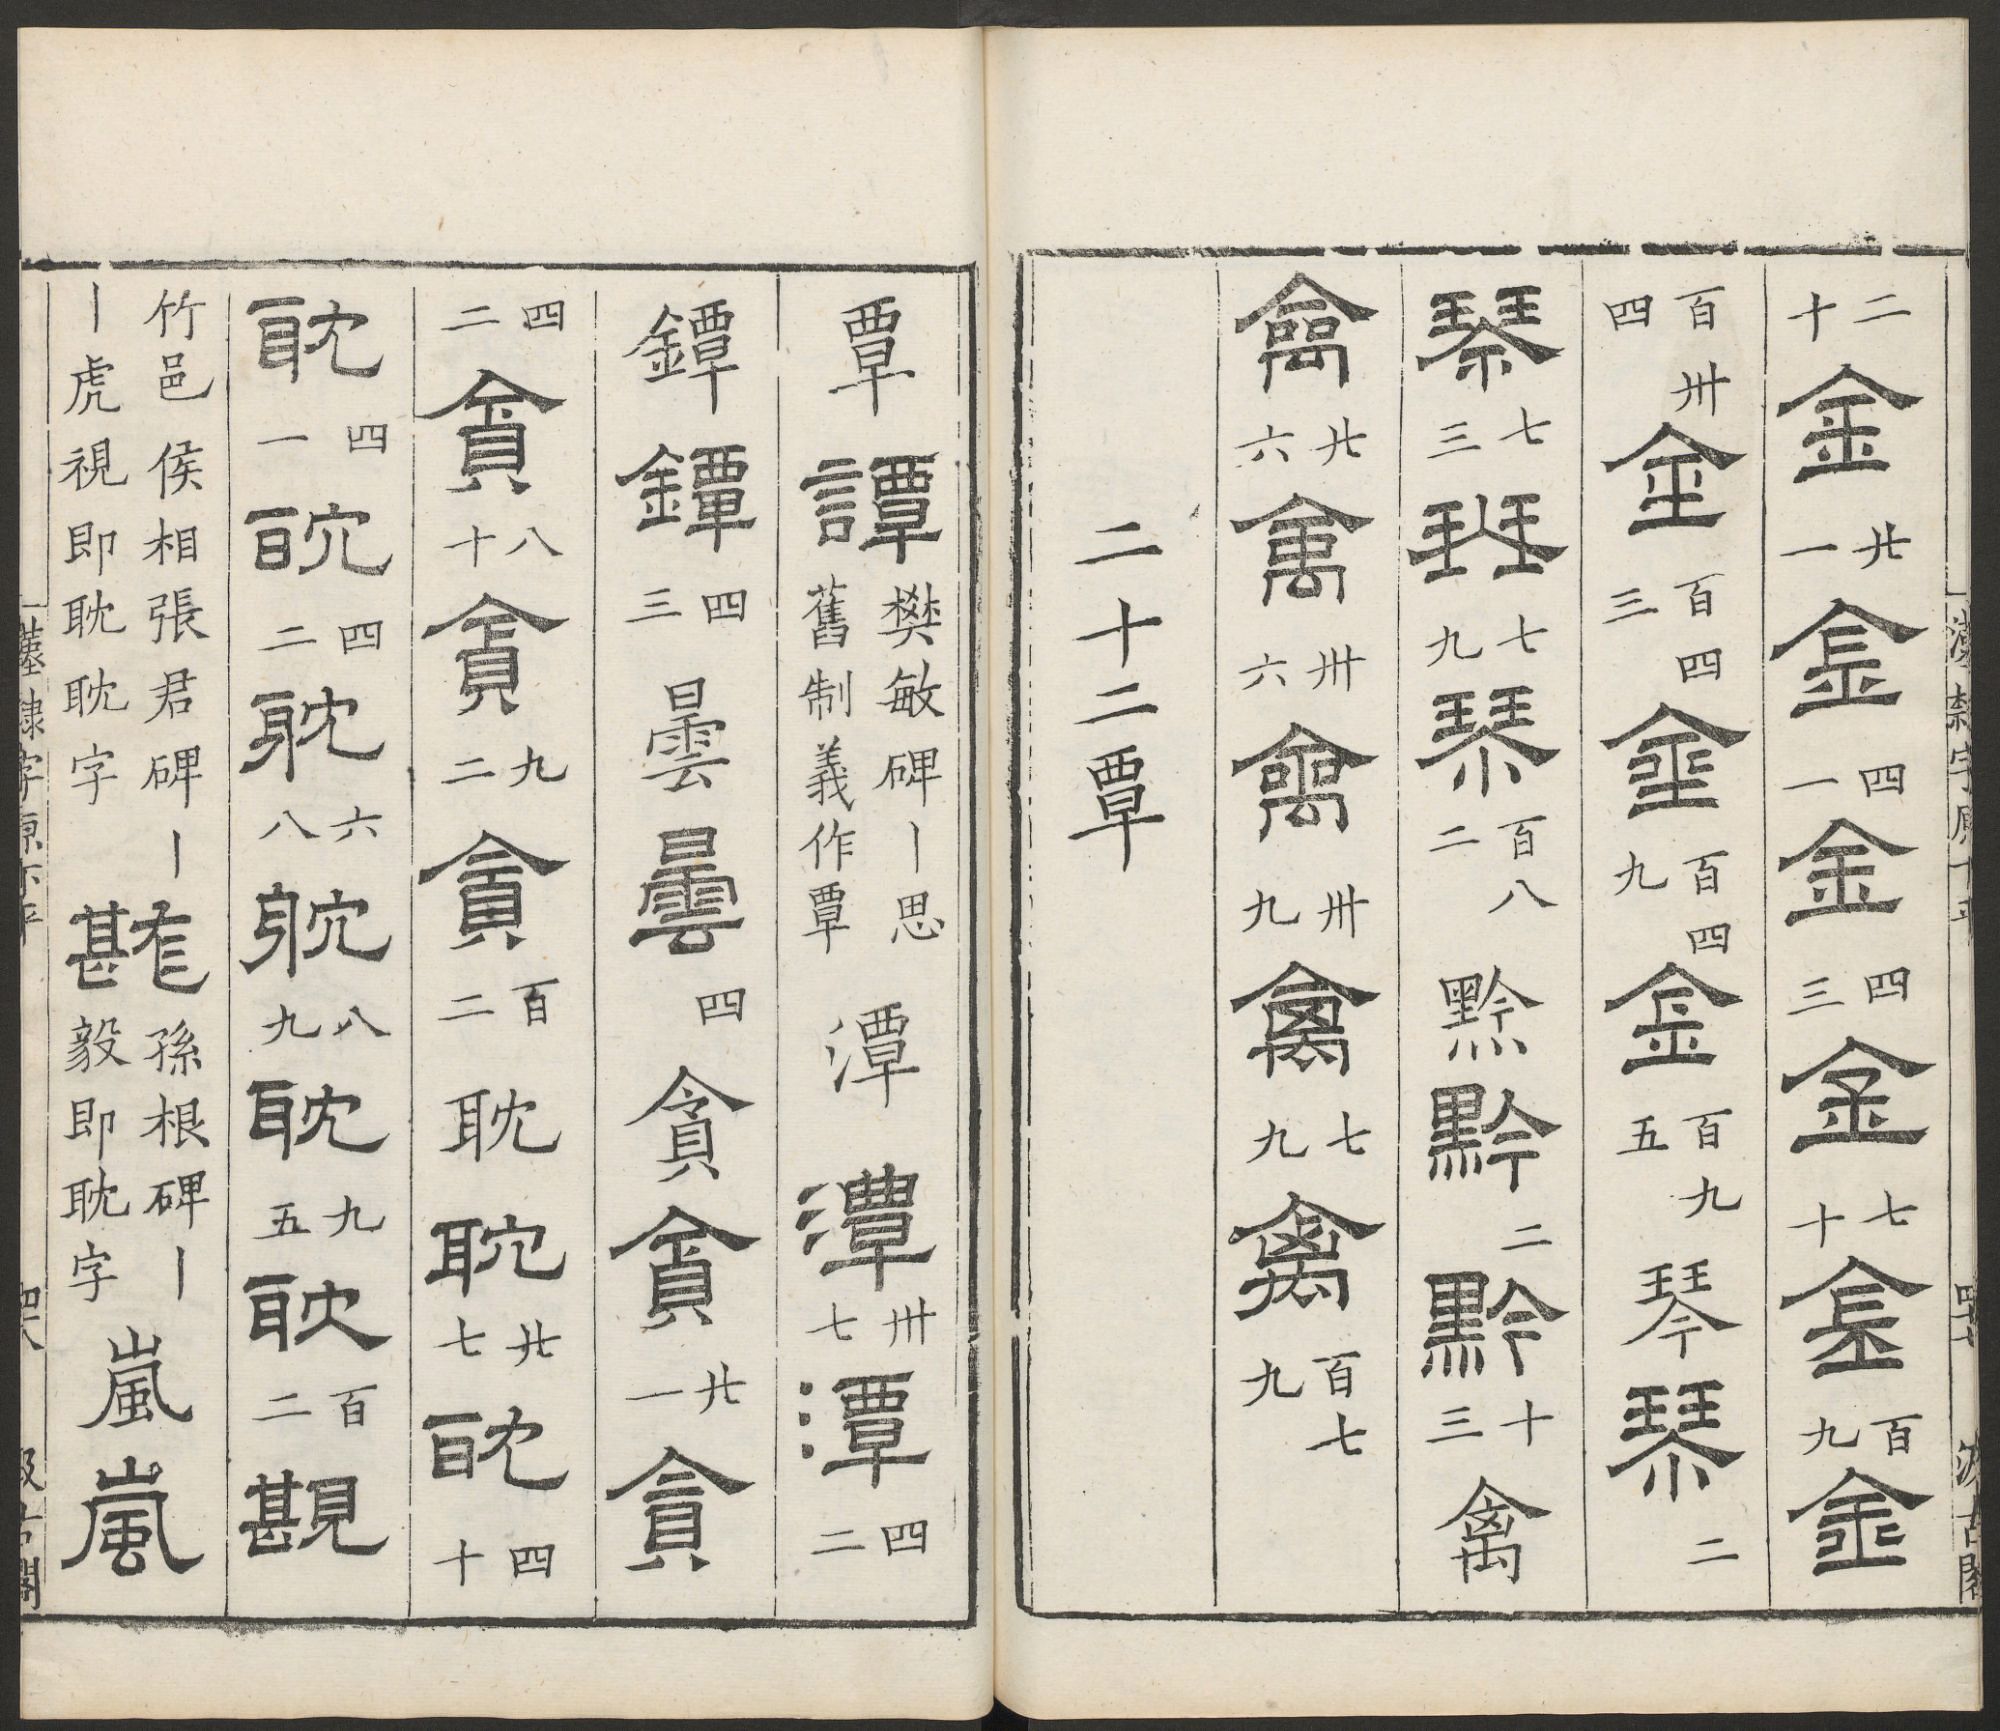 二十金廿一金四一金四三金七十金百九金
百卅四金百四三金百四九金百九五琴琴二
琴七三琴七九琴百八二黔黔二黔十三禽
禽廿六禽卅六禽卅九禽七九禽百七九
二十二覃
覃譚樊敏碑丨思舊制義作覃潭潭卅七潭四二
鐔鐔四三曇曇四貪貪廿一貪
四二貪八十貪九二貪百二耽耽廿七耽四十
耽四一耽四二耽六八耽八九耽九五耽百二
竹邑侯相張君碑丨丨虎視即耽耽字孫根碑丨毅即耽字嵐嵐
漢隸字原下平
汲古閣